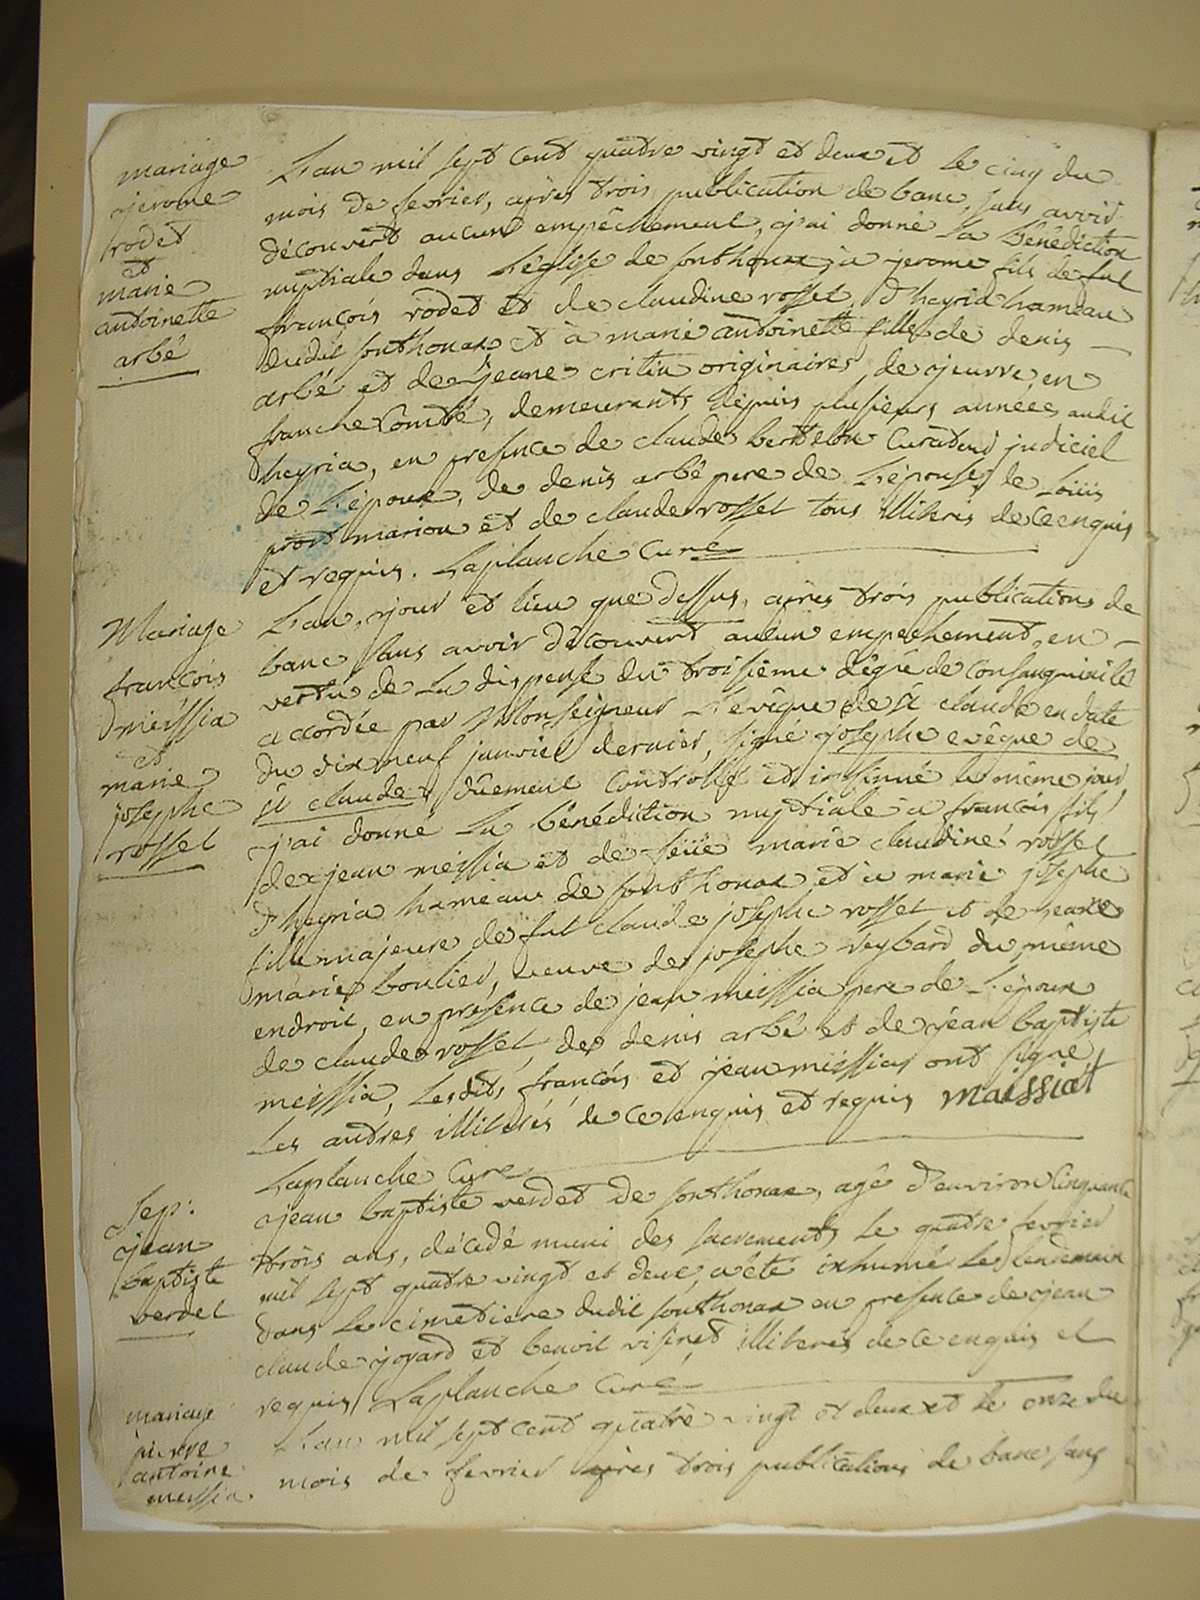 mariage
jerome
rodet
et
marie
antoinette
arbé
L'an mil sept cent quatre vingt et deux et le cinq du
mois de fevrier, après trois publication de banc, sans avoir
découvert aucun empêchement, j'ai donné la bénédiction
nuptiale dans l'église de sonthonax, à jerome fils de fut
françois rodet et de claudine rosset, d'heyria hameau
dudit sonthonax et à marie antoinette fille de denis
arbé et de jeane critin originaires de jeurre, en
franche Comté, demeurants depuis plusieurs années audit
heyria, en presence de claude berthelon Curateur judiciel
de l'époux, de denis arbé pere de l'épouse, de Loüis
prost marion et de claude rosset tous illiterés de ce enquis
et requis. Laplanche Curé
Mariage
françois
meissia
et
marie
josephe
rosset
L'an, jour et lieu que dessus, après trois publications de
banc sans avoir découvert aucun empechement, en
vertu de la dispense du troisième dégré de Consanguinité
accordée par Monseigneur l'évêque de st claude en date
du dix neuf janvier dernier, signé josephe evêque de
st claude, düement Controllé et insinué le même jour
j'ai donné la bénédiction nuptiale à françois fils
de jean meissia et de feüe marie claudine rosset
d'heyria hameau de sonthonax et à marie josephe
fille majeure de fut claude josephe rosset et de jeane
marie boulier, veuve de josephe reybard du même
endroit, en présence de jean meissia pere de l'époux
de claude rosset, de denis arbé et de jean baptiste
meissia, lesdits françois et jean meissia ont signé
Les autres illiterés de ce enquis et requis maissiat
Laplanche Curé
Sep:
jean
baptiste
verdet
jean baptiste verdet de sonthonax, agé d'environ Cinquante
trois ans, décédé muni des sacrements le quatre fevrier
mil sept quatre vingt et deux, a été inhumé le lendemain
dans le cimetière dudit sonthonax en presence de jean
claude joyard et benoit visinet illiterés de ce enquis et
requis Laplanche Curé
mariage
pierre
antoine
meissia
L'an mil sept cent quatre vingt et deux et le onze du
mois de fevrier après trois publications de banc sans